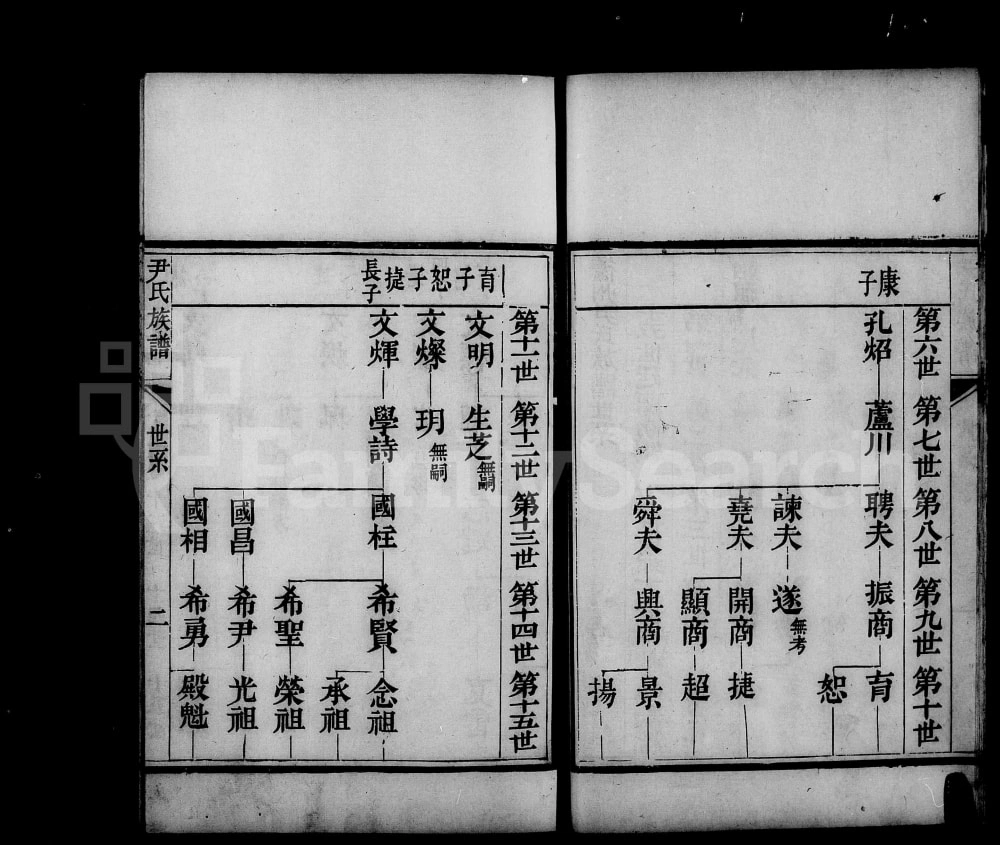 康子
第六世 第七世 第八世 第九世 第十世
孔炤 蘆川 聘夫 振商 育
恕
諫夫 遂 無考
堯夫 開商 捷
顯商 超
舜夫 興商 景
揚
育子 恕子 捷長子
第十一世 第十二世 第十三世 第十四世 第十五世
文明 生芝 無嗣
文燦 玥 無嗣
文煇 學詩 國柱 希賢 念祖
承祖
希聖 榮祖
國昌 希尹 光祖
國相 希勇 殿魁
尹氏族譜 世系 二
FamilySearch